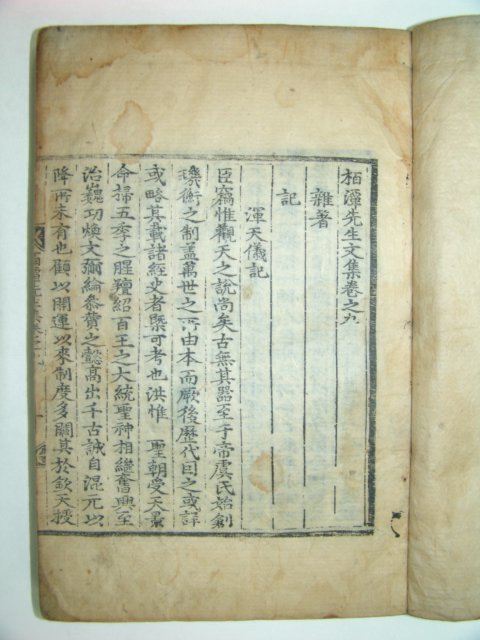 栢潭先生文集卷之九
雜著
記
渾天儀記
臣竊惟觀天之說尚矣古無其器至于帝虞氏始創
璣衡之制盖萬世之所由本而厥後歷代因之或詳
或略其載諸經史者槩可考也洪惟 聖朝受天景
命掃五季之腥羶紹百王之大統聖神相繼奮興至
治巍功煥文彌綸叅賛之懿高出千古誠自混元以
降所未有也顧以開運以來制度多闕其於欽天授